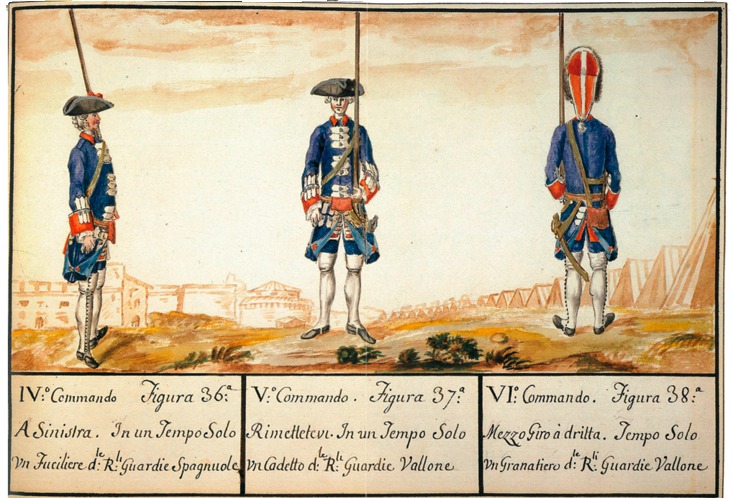 IV.º Commando Figura 36.ª
A Sinistra. In un Tempo Solo
Vn Fuciliere d.le R.li Guardie Spagnuole
V.º Commando. Figura 37.ª
Rimettetevi. In un Tempo Solo
Vn Cadetto d.le R.li Guardie Vallone
VI.º Commando. Figura 38.ª
Mezzo Giro à dritta. Tempo Solo
Vn Granatiero d.le R.li Guardie Vallone